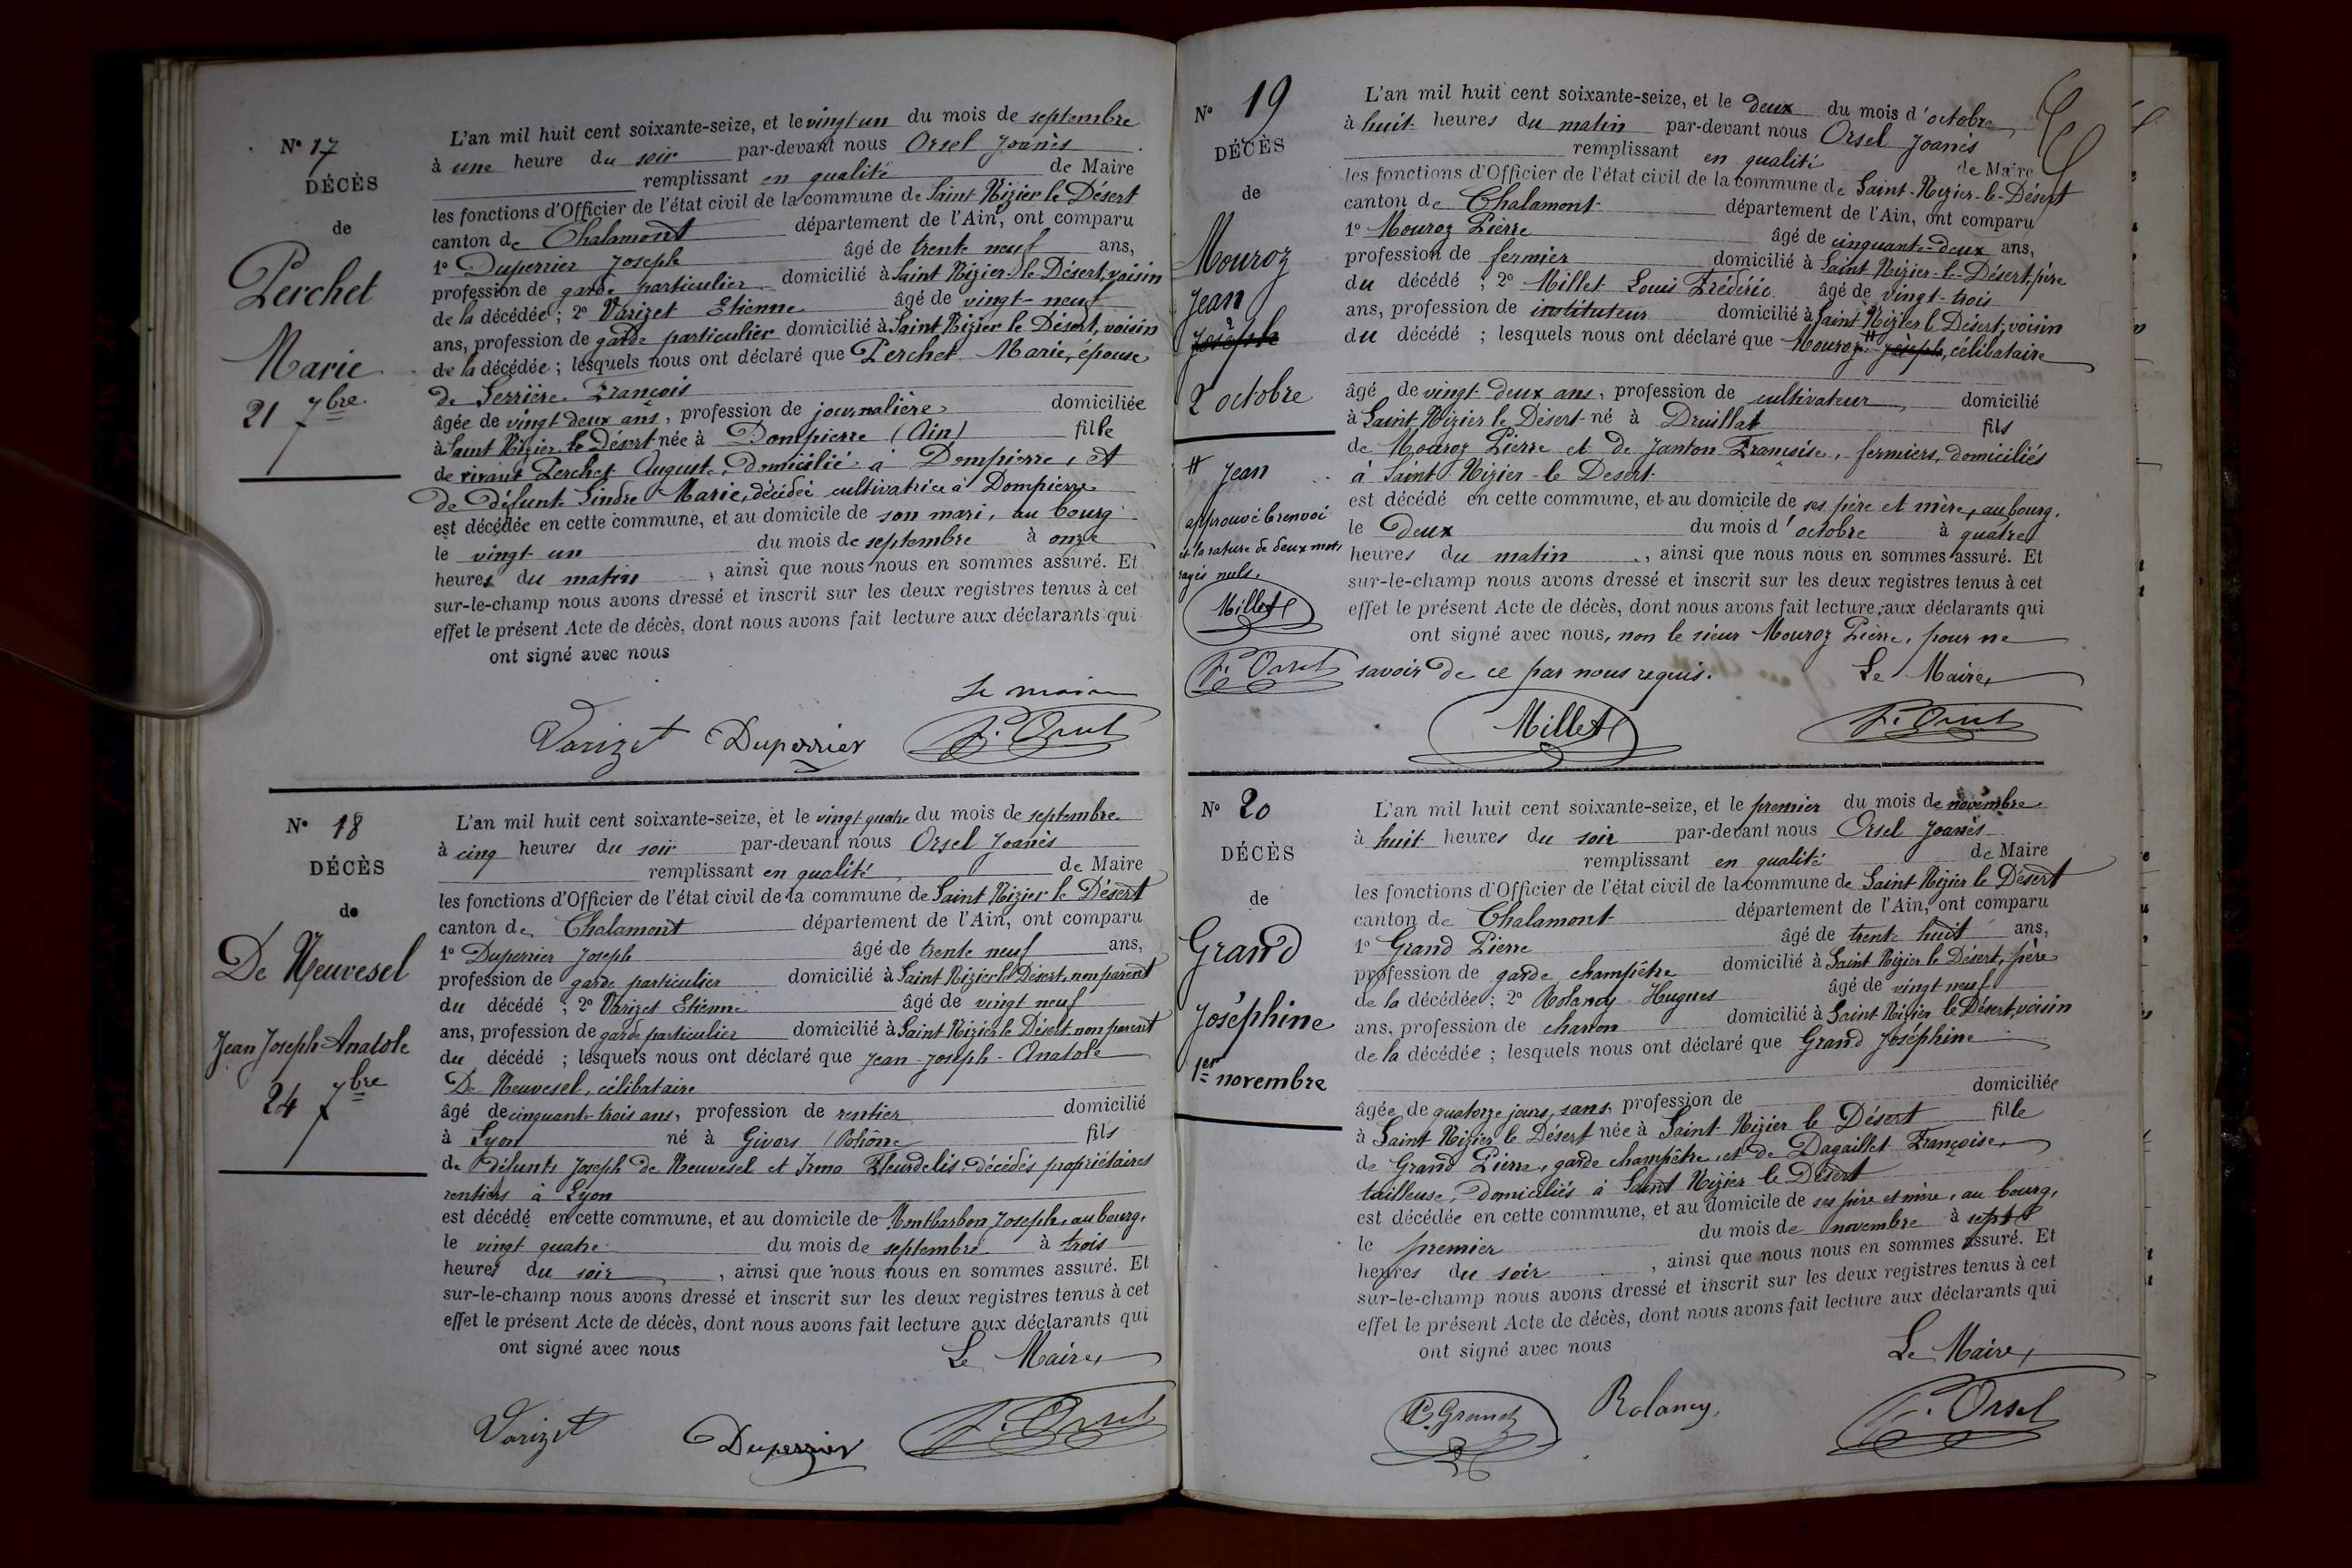 N° 17
DÉCÈS
de
Perchet
Marie
21 7bre
L'an mil huit cent soixante-seize, et le vingt un du mois de septembre
à une heure du soir par-devant nous Orsel Joanès
remplissant en qualité de Maire
les fonctions d'Officier de l'état civil de la commune de Saint Nizier le Désert
canton de Chalamont département de l'Ain, ont comparu
1° Duperrier Joseph âgé de trente neuf ans,
profession de garde particulier domicilié à Saint Nizier-le Désert, voisin
de la décédée ; 2° Varizet Etienne âgé de vingt-neuf
ans, profession de garde particulier domicilié à Saint Nizier le Désert, voisin
de la décédée ; lesquels nous ont déclaré que Perchet Marie, épouse
de Serrière François
âgée de vingt deux ans, profession de journalière domiciliée
à Saint Nizier le Désert née à Dompierre (Ain) fille
de vivant Perchet Auguste, domicilié à Dompierre, et
de défunte Sindre Marie, décédée cultivatrice à Dompierre
est décédée en cette commune, et au domicile de son mari, au bourg
le vingt un du mois de septembre à onze
heures du matin, ainsi que nous nous en sommes assuré. Et
sur-le-champ nous avons dressé et inscrit sur les deux registres tenus à cet
effet le présent Acte de décès, dont nous avons fait lecture aux déclarants qui
ont signé avec nous
Le maire
Varizet Duperrier J. Orsel
N° 18
DÉCÈS
de
De Neuvesel
Jean Joseph Anatole
24 7bre
L'an mil huit cent soixante-seize, et le vingt quatre du mois de septembre
à cinq heures du soir par-devant nous Orsel Joanès
remplissant en qualité de Maire
les fonctions d'Officier de l'état civil de la commune de Saint Nizier le Désert
canton de Chalamont département de l'Ain, ont comparu
1° Duperrier Joseph âgé de trente neuf ans,
profession de garde particulier domicilié à Saint Nizier le Désert, non parent
du décédé ; 2° Varizet Etienne âgé de vingt neuf
ans, profession de garde particulier domicilié à Saint Nizier le Désert, non parent
du décédé ; lesquels nous ont déclaré que Jean-Joseph-Anatole
De Neuvesel, célibataire
âgé de cinquante-trois ans, profession de rentier domicilié
à Lyon né à Givors (Rhône fils
de défunts Joseph de Neuvesel et Irma Fleurdelis décédés propriétaires
rentiers à Lyon
est décédé en cette commune, et au domicile de Montbarbon Joseph, au bourg,
le vingt quatre du mois de septembre à trois
heures du soir, ainsi que nous nous en sommes assuré. Et
sur-le-champ nous avons dressé et inscrit sur les deux registres tenus à cet
effet le présent Acte de décès, dont nous avons fait lecture aux déclarants qui
ont signé avec nous Le Maire,
Varizet Duperrier J. Orsel
N° 19
DÉCÈS
de
Mouroz
Jean
Joseph
2 octobre
# Jean
approuvé le renvoi
et la rature de deux mots
rayés nuls.
Millet
J. Orsel
L'an mil huit cent soixante-seize, et le deux du mois d'octobre
à huit heures du matin par-devant nous Orsel Joanès
remplissant en qualité de Maire
les fonctions d'Officier de l'état civil de la commune de Saint-Nizier-le-Désert
canton de Chalamont département de l'Ain, ont comparu
1° Mouroz Pierre âgé de cinquante-deux ans,
profession de fermier domicilié à Saint Nizier-le-Désert, père
du décédé ; 2° Millet Louis Frédéric âgé de vingt-trois
ans, profession de instituteur domicilié à Saint Nizier le Désert, voisin
du décédé ; lesquels nous ont déclaré que Mouroz # Joseph, célibataire
âgé de vingt deux ans, profession de cultivateur domicilié
à Saint Nizier le Désert né à Druillat fils
de Mouroz Pierre et de Janton Françoise, fermiers, domiciliés
à Saint Nizier-le Désert
est décédé en cette commune, et au domicile de ses père et mère, au bourg.
le deux du mois d'octobre à quatre
heures du matin, ainsi que nous nous en sommes assuré. Et
sur-le-champ nous avons dressé et inscrit sur les deux registres tenus à cet
effet le présent Acte de décès, dont nous avons fait lecture aux déclarants qui
ont signé avec nous, non le sieur Mouroz Pierre, pour ne
savoir de ce par nous requis. Le Maire,
Millet J. Orsel
N° 20
DÉCÈS
de
Grand
Joséphine
1er novembre
L'an mil huit cent soixante-seize, et le premier du mois de novembre
à huit heures du soir par-devant nous Orsel Joanès
remplissant en qualité de Maire
les fonctions d'Officier de l'état civil de la commune de Saint Nizier le Désert
canton de Chalamont département de l'Ain, ont comparu
1° Grand Pierre âgé de trente huit ans,
profession de garde champêtre domicilié à Saint Nizier le Désert, père
de la décédée ; 2° Rolancy Hugues âgé de vingt neuf
ans, profession de charron domicilié à Saint Nizier le Désert, voisin
de la décédée ; lesquels nous ont déclaré que Grand Joséphine
âgée de quatorze jours, sans profession de domiciliée
à Saint Nizier le Désert née à Saint Nizier le Désert fille
de Grand Pierre, garde champêtre, et de Dagaillet Françoise,
tailleuse, domiciliés à Saint Nizier le Désert
est décédée en cette commune, et au domicile de ses père et mère, au bourg,
le premier du mois de novembre à sept
heures du soir, ainsi que nous nous en sommes assuré. Et
sur-le-champ nous avons dressé et inscrit sur les deux registres tenus à cet
effet le présent Acte de décès, dont nous avons fait lecture aux déclarants qui
ont signé avec nous Le Maire,
P. Grand Rolancy, J. Orsel